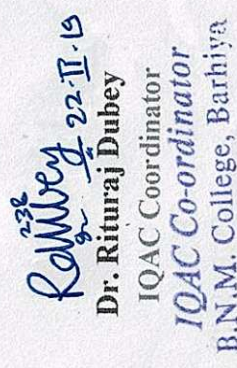 22-II-19
Dr. Rituraj Dubey
IQAC Coordinator
IQAC Co-ordinator
B.N.M. College, Barhiya